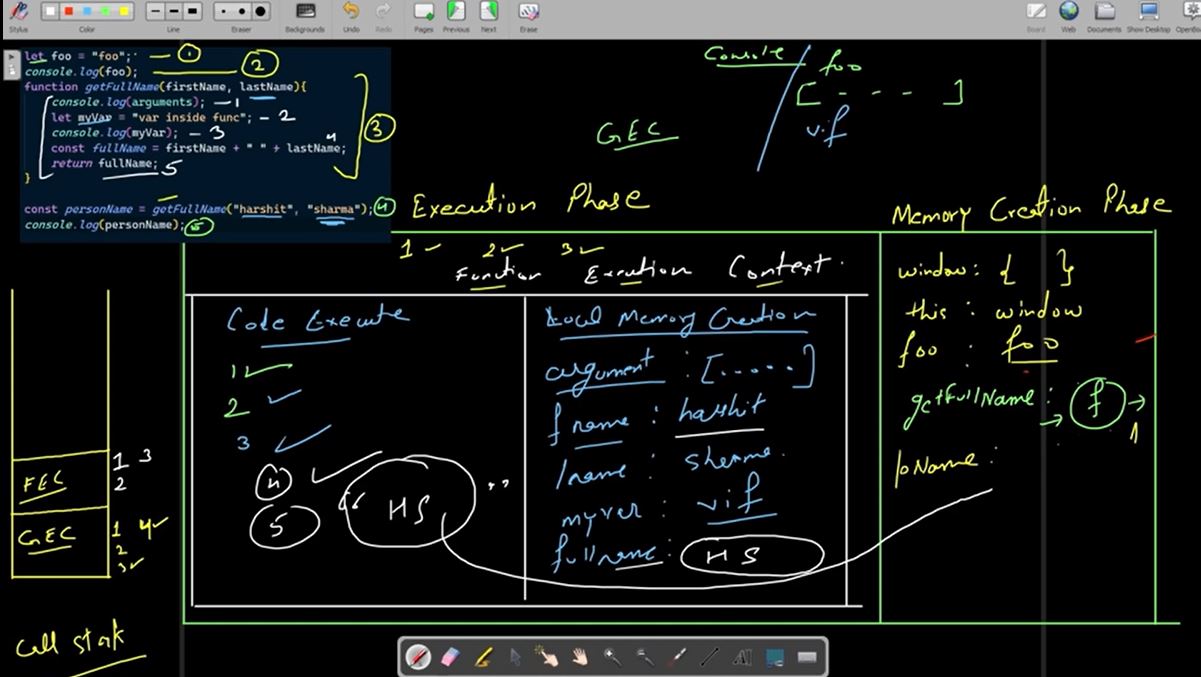 Stylus Color Line Eraser Backgrounds Undo Redo Pages Previous Next Erase Board Web Documents Show Desktop OpenBoard
let foo = "foo"; — 1
console.log(foo); — 2
function getFullName(firstName, lastName){
console.log(arguments); — 1
let myVar = "var inside func"; — 2
console.log(myVar); — 3
const fullName = firstName + " " + lastName; 4
return fullName; 5
}
3
const personName = getFullName("harshit", "sharma"); 4
console.log(personName); 5
Console
foo
[ - - - ]
vif
GEC
Execution Phase
Memory Creation Phase
1 2 3
Function Execution Context.
Code Execute
1
2
3
4
5
"HS"
Local Memory Creation
argument : [.....]
fname : harshit
lname : sharma.
myvar : vif
fullname : HS
window : { }
this : window
foo : foo
getFullName : f
1
pName :
FEC
1 3
2
GEC
1 4
2
3
Call stack